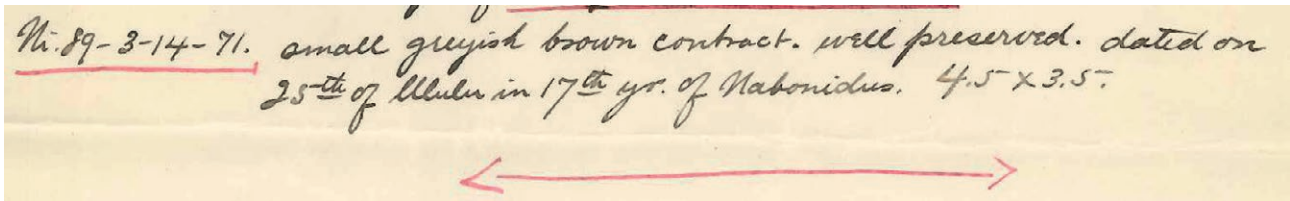 Ni. 89-3-14-71. small greyish brown contract. well preserved. dated on
25th of Ululu in 17th yr. of Nabonidus. 4.5 x 3.5.